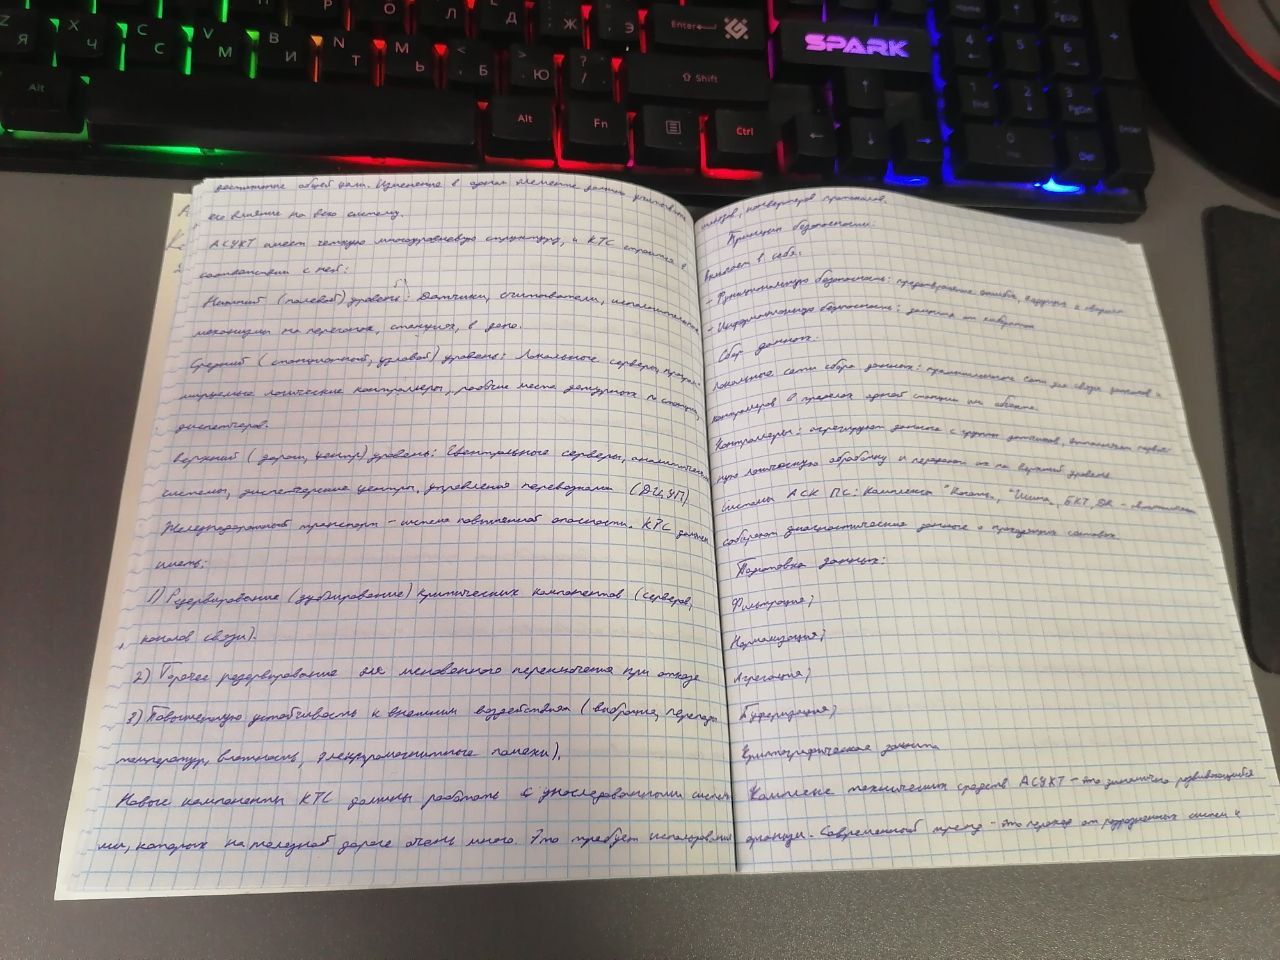 Z Я
X Ч
C С
V М
B И
N Т
M Ь
< , Б
> . Ю
? / .
О
Л
Д
Ж
Э
Enter
Shift
Alt
Alt
Fn
Ctrl
SPARK
Home
PgUp
4
5
6
1 End
2
3 PgDn
0
Del
Enter
достижение общей цели. Изменение в одном элементе должно учитывать
его влияние на всю систему.
АСУЖТ имеет четкую многоуровневую структуру, и КТС строится в
соответствии с ней:
Нижний (полевой) уровень: Датчики, считыватели, исполнительные
механизмы на перегонах, станциях, в депо.
Средний (станционный, узловой) уровень: Локальные серверы, програм-
мируемые логические контроллеры, рабочие места дежурных по станции,
диспетчеров.
Верхний (дорог, центр) уровень: Центральные серверы, аналитические
системы, диспетчерские центры, управления перевозками (ДЦУП)
Железнодорожный транспорт - система повышенной опасности. КТС должен
иметь:
1) Резервирование (дублирование) критических компонентов (серверов,
каналов связи).
2) Горячее резервирование для мгновенного переключения при отказе
3) Повышенную устойчивость к внешним воздействиям (вибрация, перепады
температур, влажность, электромагнитные помехи).
Новые компоненты КТС должны работать с унаследованными система-
ми, которых на железной дороге очень много. Это требует использования
шлюзов, конвертеров протоколов.
Принцип безопасности:
Включает в себя:
- Функциональную безопасность: предотвращение ошибок, ведущих к авариям
- Информационную безопасность: защита от кибератак
Сбор данных:
Локальные сети сбора данных: промышленные сети для связи датчиков и
контролеров в пределах одной станции или объекта.
Контроллеры: агрегируют данные с группы датчиков, выполняют первич-
ную логическую обработку и передают их на верхний уровень
Системы АСК ПС: Комплексы
собирают диагностические данные о проходящих составах
Подготовка данных:
Фильтрация;
Нормализация;
Агрегация;
Буферизация;
Криптографическая защита
Комплекс технических средств АСУЖТ - это динамично развивающийся
организм. Современный тренд - это переход от разрозненных систем к